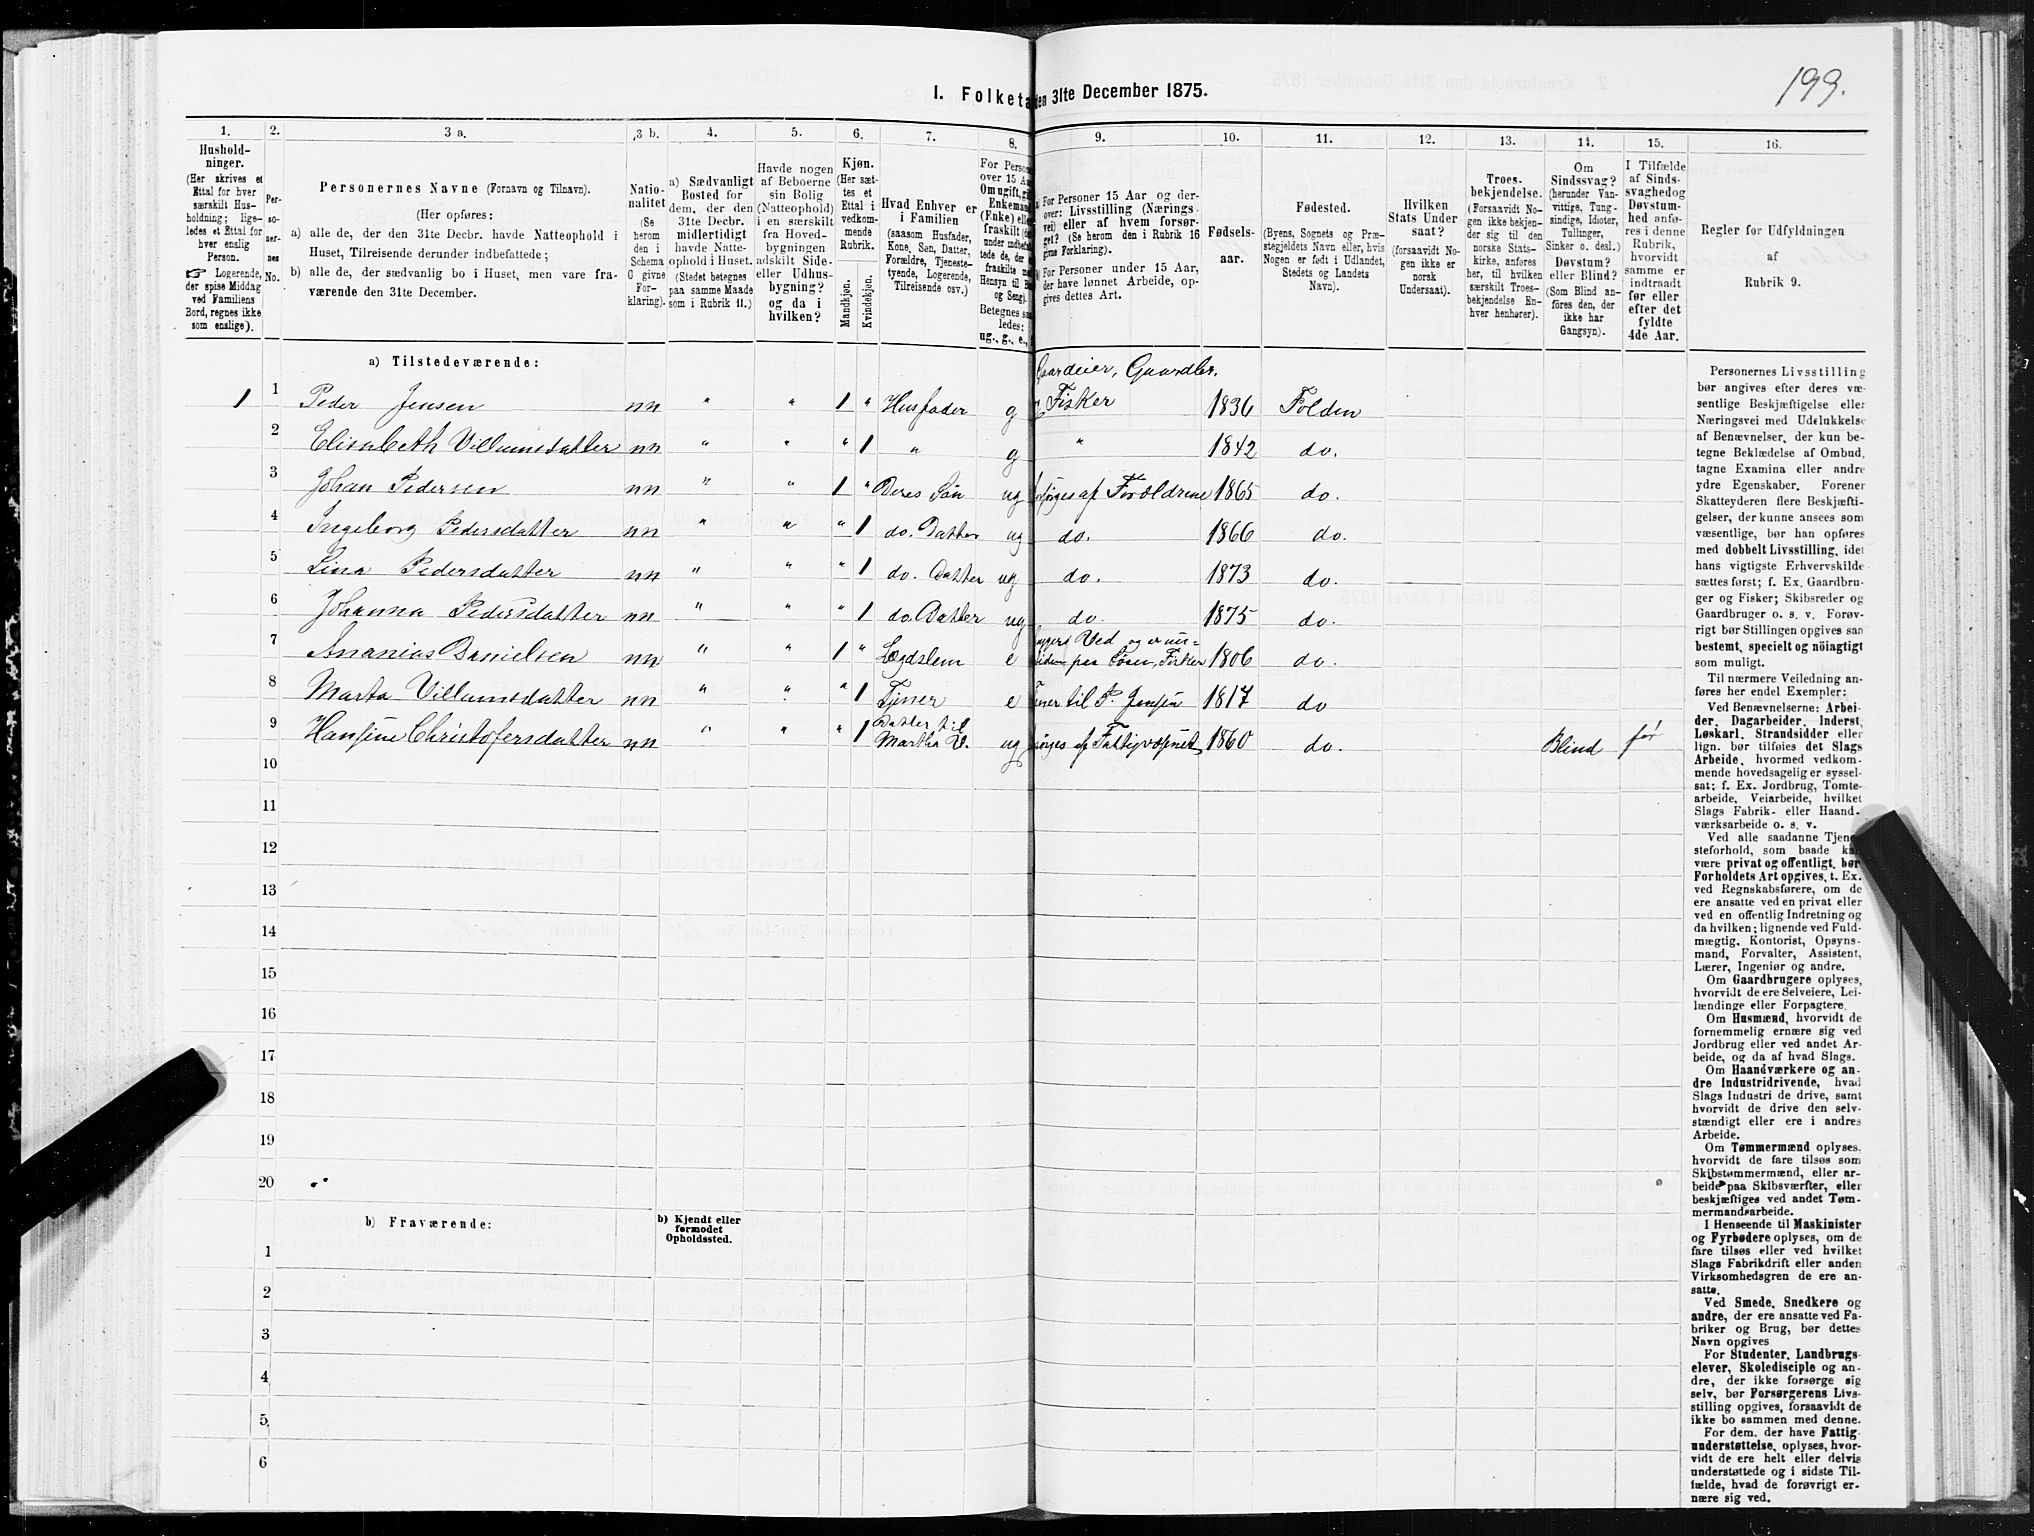 199.
I. Folketa
den 31te December 1875.
1. 2. 3 a. 3 b. 4. 5. 6. 7. 8. 9. 10. 11. 12. 13. 14. 15. 16.
Hushold-
ninger.
(Her skrives et
Ettal for hver
særskilt Hus-
holdning; lige-
ledes et Ettal for
hver enslig
Person.
☞ Logerende,
der spise Middag
ved Familiens
Bord, regnes ikke
som enslige).
Per-
so-
ner-
nes
No.
Personernes Navne (Fornavn og Tilnavn).
(Her opføres:
a) alle de, der den 31te Decbr. havde Natteophold i
Huset, Tilreisende derunder indbefattede;
b) alle de, der sædvanlig bo i Huset, men vare fra-
værende den 31te December.
Natio-
nalitet
(Se
herom
den i
Schema
G givne
For-
klaring).
a) Sædvanligt
Bosted for
dem, der den
31te Decbr.
midlertidigt
havde Natte-
ophold i Huset.
(Stedet betegnes
paa samme Maade
som i Rubrik 11.)
Havde nogen
af Beboerne
sin Bolig
(Natteophold)
i en særskilt
fra Hoved-
bygningen
adskilt Side-
eller Udhus-
bygning?
og da i
hvilken?
Kjøn.
(Her sæt-
tes et
Ettal i
vedkom-
mende
Rubrik.
Mandkjøn.
Kvindekjøn.
Hvad Enhver er
i Familien
(saasom Husfader,
Kone, Søn, Datter,
Forældre, Tjeneste-
tyende, Logerende,
Tilreisende osv.)
For Person
over 15 Aa
Om ugift, gif
Enkeman
(Enke) elle
fraskilt (de
under indbefat-
tede de, der e
fraskilte me
Hensyn til B
og Seng).
Betegnes saa
ledes:
ug., g., e.,
a) For Personer 15 Aar og der-
over: Livsstilling (Nærings-
vei) eller af hvem forsør-
get? (Se herom den i Rubrik 16
givne Forklaring).
b) For Personer under 15 Aar,
der have lønnet Arbeide, op-
gives dettes Art.
Fødsels-
aar.
Fødested.
(Byens, Sognets og Præ-
stegjeldets Navn eller, hvis
Nogen er født i Udlandet,
Stedets og Landets
Navn).
Hvilken
Stats Under-
saat?
(forsaavidt No-
gen ikke er
norsk
Undersaat).
Troes-
bekjendelse.
(Forsaavidt No-
gen ikke bekjen-
der sig til den
norske Stats-
kirke, anføres
her, til hvilken
særskilt Troes-
bekjendelse En-
hver henhører).
Om
Sindssvag?
(herunder Van-
vittige, Tung-
sindige, Idioter,
Tullinger,
Sinker o. desl.)
Døvstum?
eller Blind?
(Som Blind an-
føres den, der
ikke har
Gangsyn).
I Tilfælde
af Sinds-
svaghed og
Døvstum-
hed anfø-
res i denne
Rubrik,
hvorvidt
samme er
indtraadt
før eller
efter det
fyldte
4de Aar.
Regler for Udfyldningen
af
Rubrik 9.
a) Tilstedeværende:
Gaardeier, Gaardbr.
1 1 Peder Jensen nn " " 1 " Husfader g Fisker 1836 Folden
2 Elisabeth Villumsdatter nn " " " 1 " g " 1842 do.
3 Johan Pedersen nn " " 1 " Deres Søn ug forsørges af Forældrene 1865 do.
4 Ingeborg Pedersdatter nn " " " 1 do. Datter ug do. 1866 do.
5 Lina Pedersdatter nn " " " 1 do. Datter ug do. 1873 do.
6 Johanna Pedersdatter nn " " " 1 do. Datter ug do. 1875 do.
7 Ananias Danielsen nn " " 1 " Lægdslem e Ved og er paa Søen, Fisker 1806 do.
8 Marta Villumsdatter nn " " " 1 Tjner e til P. Jensen 1817 do
9 Hansine Christofersdatter nn " " " 1 Datter til Martha V. ug af Fattigvæsnet 1860 do. Blind før
10
11
12
13
14
15
16
17
18
19
20
b) Fraværende:
b) Kjendt eller
formodet
Opholdssted.
1
2
3
4
5
6
Personernes Livsstilling
bør angives efter deres væ-
sentlige Beskjæftigelse eller
Næringsvei med Udelukkelse
af Benævnelser, der kun be-
tegne Beklædelse af Ombud,
tagne Examina eller andre
ydre Egenskaber. Forener
Skatteyderen flere Beskjæfti-
gelser, der kunne ansees som
væsentlige, bør han opføres
med dobbelt Livsstilling, idet
hans vigtigste Erhvervskilde
sættes først; f. Ex. Gaardbru-
ger og Fisker; Skibsreder og
Gaardbruger o. s. v. Forøv-
rigt bør Stillingen opgives saa
bestemt, specielt og nøiagtigt
som muligt.
Til nærmere Veiledning an-
føres her endel Exempler:
Ved Benævnelserne: Arbei-
der, Dagarbeider, Inderst,
Løskarl, Strandsidder eller
lign. bør tilføies det Slags
Arbeide, hvormed vedkom-
mende hovedsagelig er syssel-
sat; f. Ex. Jordbrug, Tomte-
arbeide, Veiarbeide, hvilket
Slags Fabrik- eller Haand-
værksarbeide o. s. v.
Ved alle saadanne Tjene-
steforhold, som baade kan
være privat og offentligt, bør
Forholdets Art opgives, t. Ex.
ved Regnskabsførere, om de
ere ansatte ved en privat eller
ved en offentlig Indretning og
da hvilken; lignende ved Fuld-
mægtig, Kontorist, Opsyns-
mand, Forvalter, Assistent,
Lærer, Ingeniør og andre.
Om Gaardbrugere oplyses,
hvorvidt de ere Selveiere, Lei-
lændinge eller Forpagtere.
Om Husmænd, hvorvidt de
fornemmelig ernære sig ved
Jordbrug eller ved andet Ar-
beide, og da af hvad Slags.
Om Haandværkere og an-
dre Industridrivende, hvad
Slags Industri de drive, samt
hvorvidt de drive den selv-
stændigt eller ere i andres
Arbeide.
Om Tømmermænd oplyses,
hvorvidt de fare tilsøs som
Skibstømmermænd, eller ar-
beide paa Skibsværfter, eller
beskjæftiges ved andet Tøm-
mermandsarbeide.
I Henseende til Maskinister
og Fyrbødere oplyses, om de
fare tilsøs eller ved hvilket
Slags Fabrikdrift eller anden
Virksomhedsgren de ere an-
satte.
Ved Smede, Snedkere og
andre, der ere ansatte ved Fa-
briker og Brug, bør dettes
Navn opgives
For Studenter, Landbrugs-
elever, Skoledisciple og an-
dre, der ikke forsørge sig
selv, bør Forsørgerens Livs-
stilling opgives, forsaavidt de
ikke bo sammen med denne.
For dem, der have Fattig-
understøttelse, oplyses, hvor-
vidt de ere helt eller delvis
understøttede og i sidste Til-
fælde, hvad de forøvrigt er-
nære sig ved.